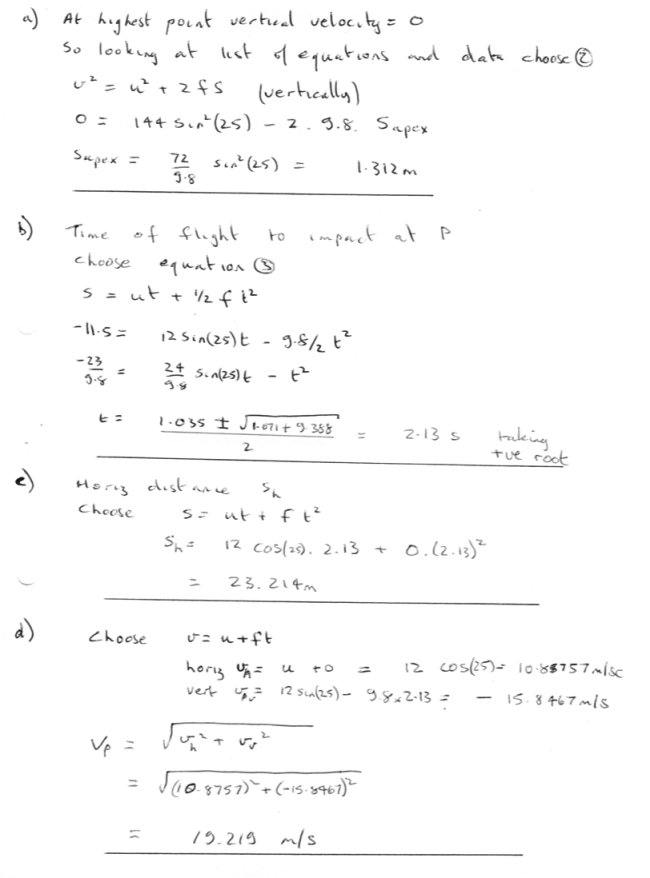 a) At highest point vertical velocity = 0
So looking at list of equations and data choose ②
v² = u² + 2fs (vertically)
0 = 144 sin²(25) - 2 . 9.8. Sapex
Sapex = 72/9.8 sin²(25) = 1.312m
b) Time of flight to impact at P
choose equation ③
s = ut + 1/2 f t²
-11.5 = 12 sin(25)t - 9.8/2 t²
-23/9.8 = 24/9.8 sin(25)t - t²
t = (1.035 ± √(1.071 + 9.388))/2 = 2.13 s taking
+ve root
c) Horiz distance Sh
Choose s = ut + f t²
Sh = 12 cos(25). 2.13 + 0.(2.13)²
= 23.214m
d) Choose v = u + ft
horiz vh = u + 0 = 12 cos(25) = 10.88757m/sc
vert vv = 12 sin(25) - 9.8 x 2.13 = - 15.8467m/s
Vp = √(vh² + vv²)
= √((10.8757)² + (-15.8467)²)
= 19.219 m/s